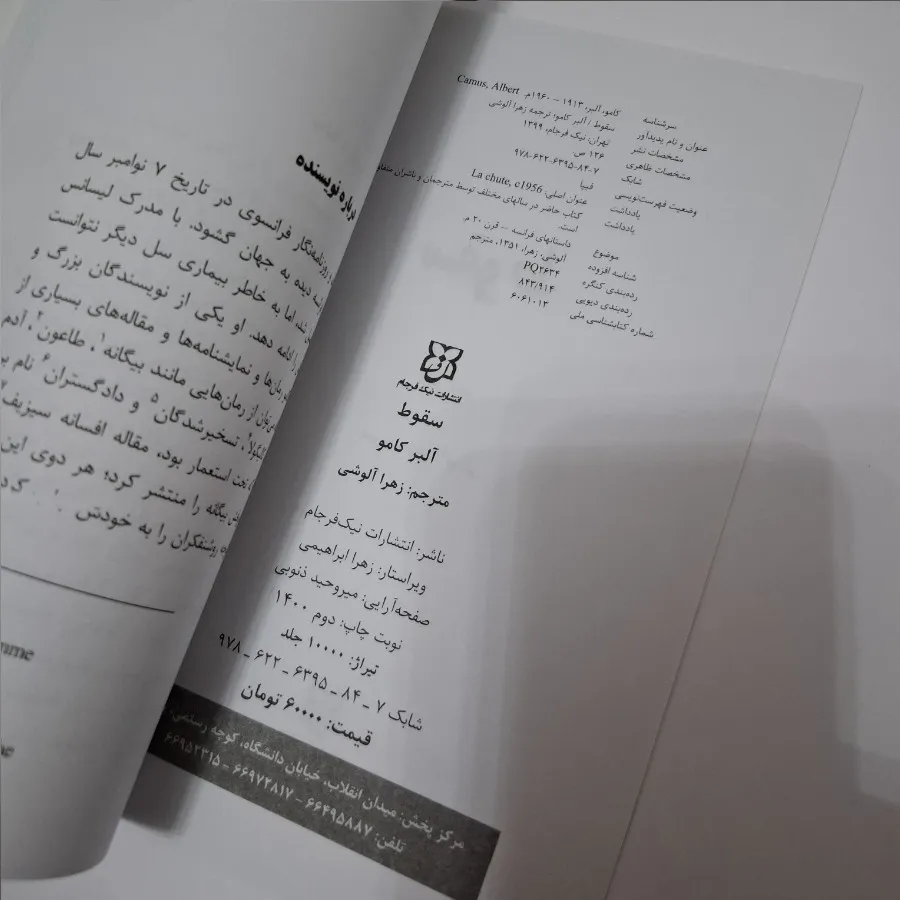 سرشناسه کامو، آلبر، ۱۹۱۳ - ۱۹۶۰م. Camus, Albert
عنوان و نام پدیدآور سقوط / آلبر کامو؛ ترجمه زهرا آلوشی
مشخصات نشر تهران: نیک فرجام، ۱۳۹۹
مشخصات ظاهری ۱۳۶ ص.
شابک ۹۷۸-۶۲۲-۶۳۹۵-۸۴-۷
وضعیت فهرست‌نویسی فیپا
یادداشت عنوان اصلی: La chute, c1956
یادداشت کتاب حاضر در سالهای مختلف توسط مترجمان و ناشران
است.
موضوع داستانهای فرانسه -- قرن ۲۰ م.
شناسه افزوده آلوشی، زهرا، ۱۳۵۱، مترجم
رده‌بندی کنگره PQ۲۶۳۴
رده‌بندی دیویی ۸۴۳/۹۱۴
شماره کتابشناسی ملی ۶۰۶۱۰۱۳
انتشارات نیک فرجام
سقوط
آلبر کامو
مترجم: زهرا آلوشی
ناشر: انتشارات نیک‌فرجام
ویراستار: زهرا ابراهیمی
صفحه‌آرایی: میروحید ذنوبی
نوبت چاپ: دوم ۱۴۰۰
تیراژ: ۱۰۰۰۰ جلد
شابک ۷ ـ ۸۴ ـ ۶۳۹۵ ـ ۶۲۲ ـ ۹۷۸
قیمت: ۶۰۰۰۰ تومان
مرکز پخش: میدان انقلاب، خیابان دانشگاه، کوچه رستمی،
تلفن: ۶۶۴۹۵۸۸۷ - ۶۶۹۷۲۸۱۷ - ۶۶۹۵۲۳۱۵
درباره نویسنده
روزنامه‌نگار فرانسوی در تاریخ ۷ نوامبر سال
دیده به جهان گشود. با مدرک لیسانس
شد، اما به خاطر بیماری سل دیگر نتوانست
را ادامه دهد. او یکی از نویسندگان بزرگ و
رمان‌ها و نمایشنامه‌ها و مقاله‌های بسیاری از
از رمان‌هایی مانند بیگانه۱، طاعون۲، آدم
تسخیرشدگان۵ و دادگستران۶ نام
تحت استعمار بود، مقاله افسانه سیزیف
بیگانه را منتشر کرد؛ هر دوی این
روشنفکران را به خودش